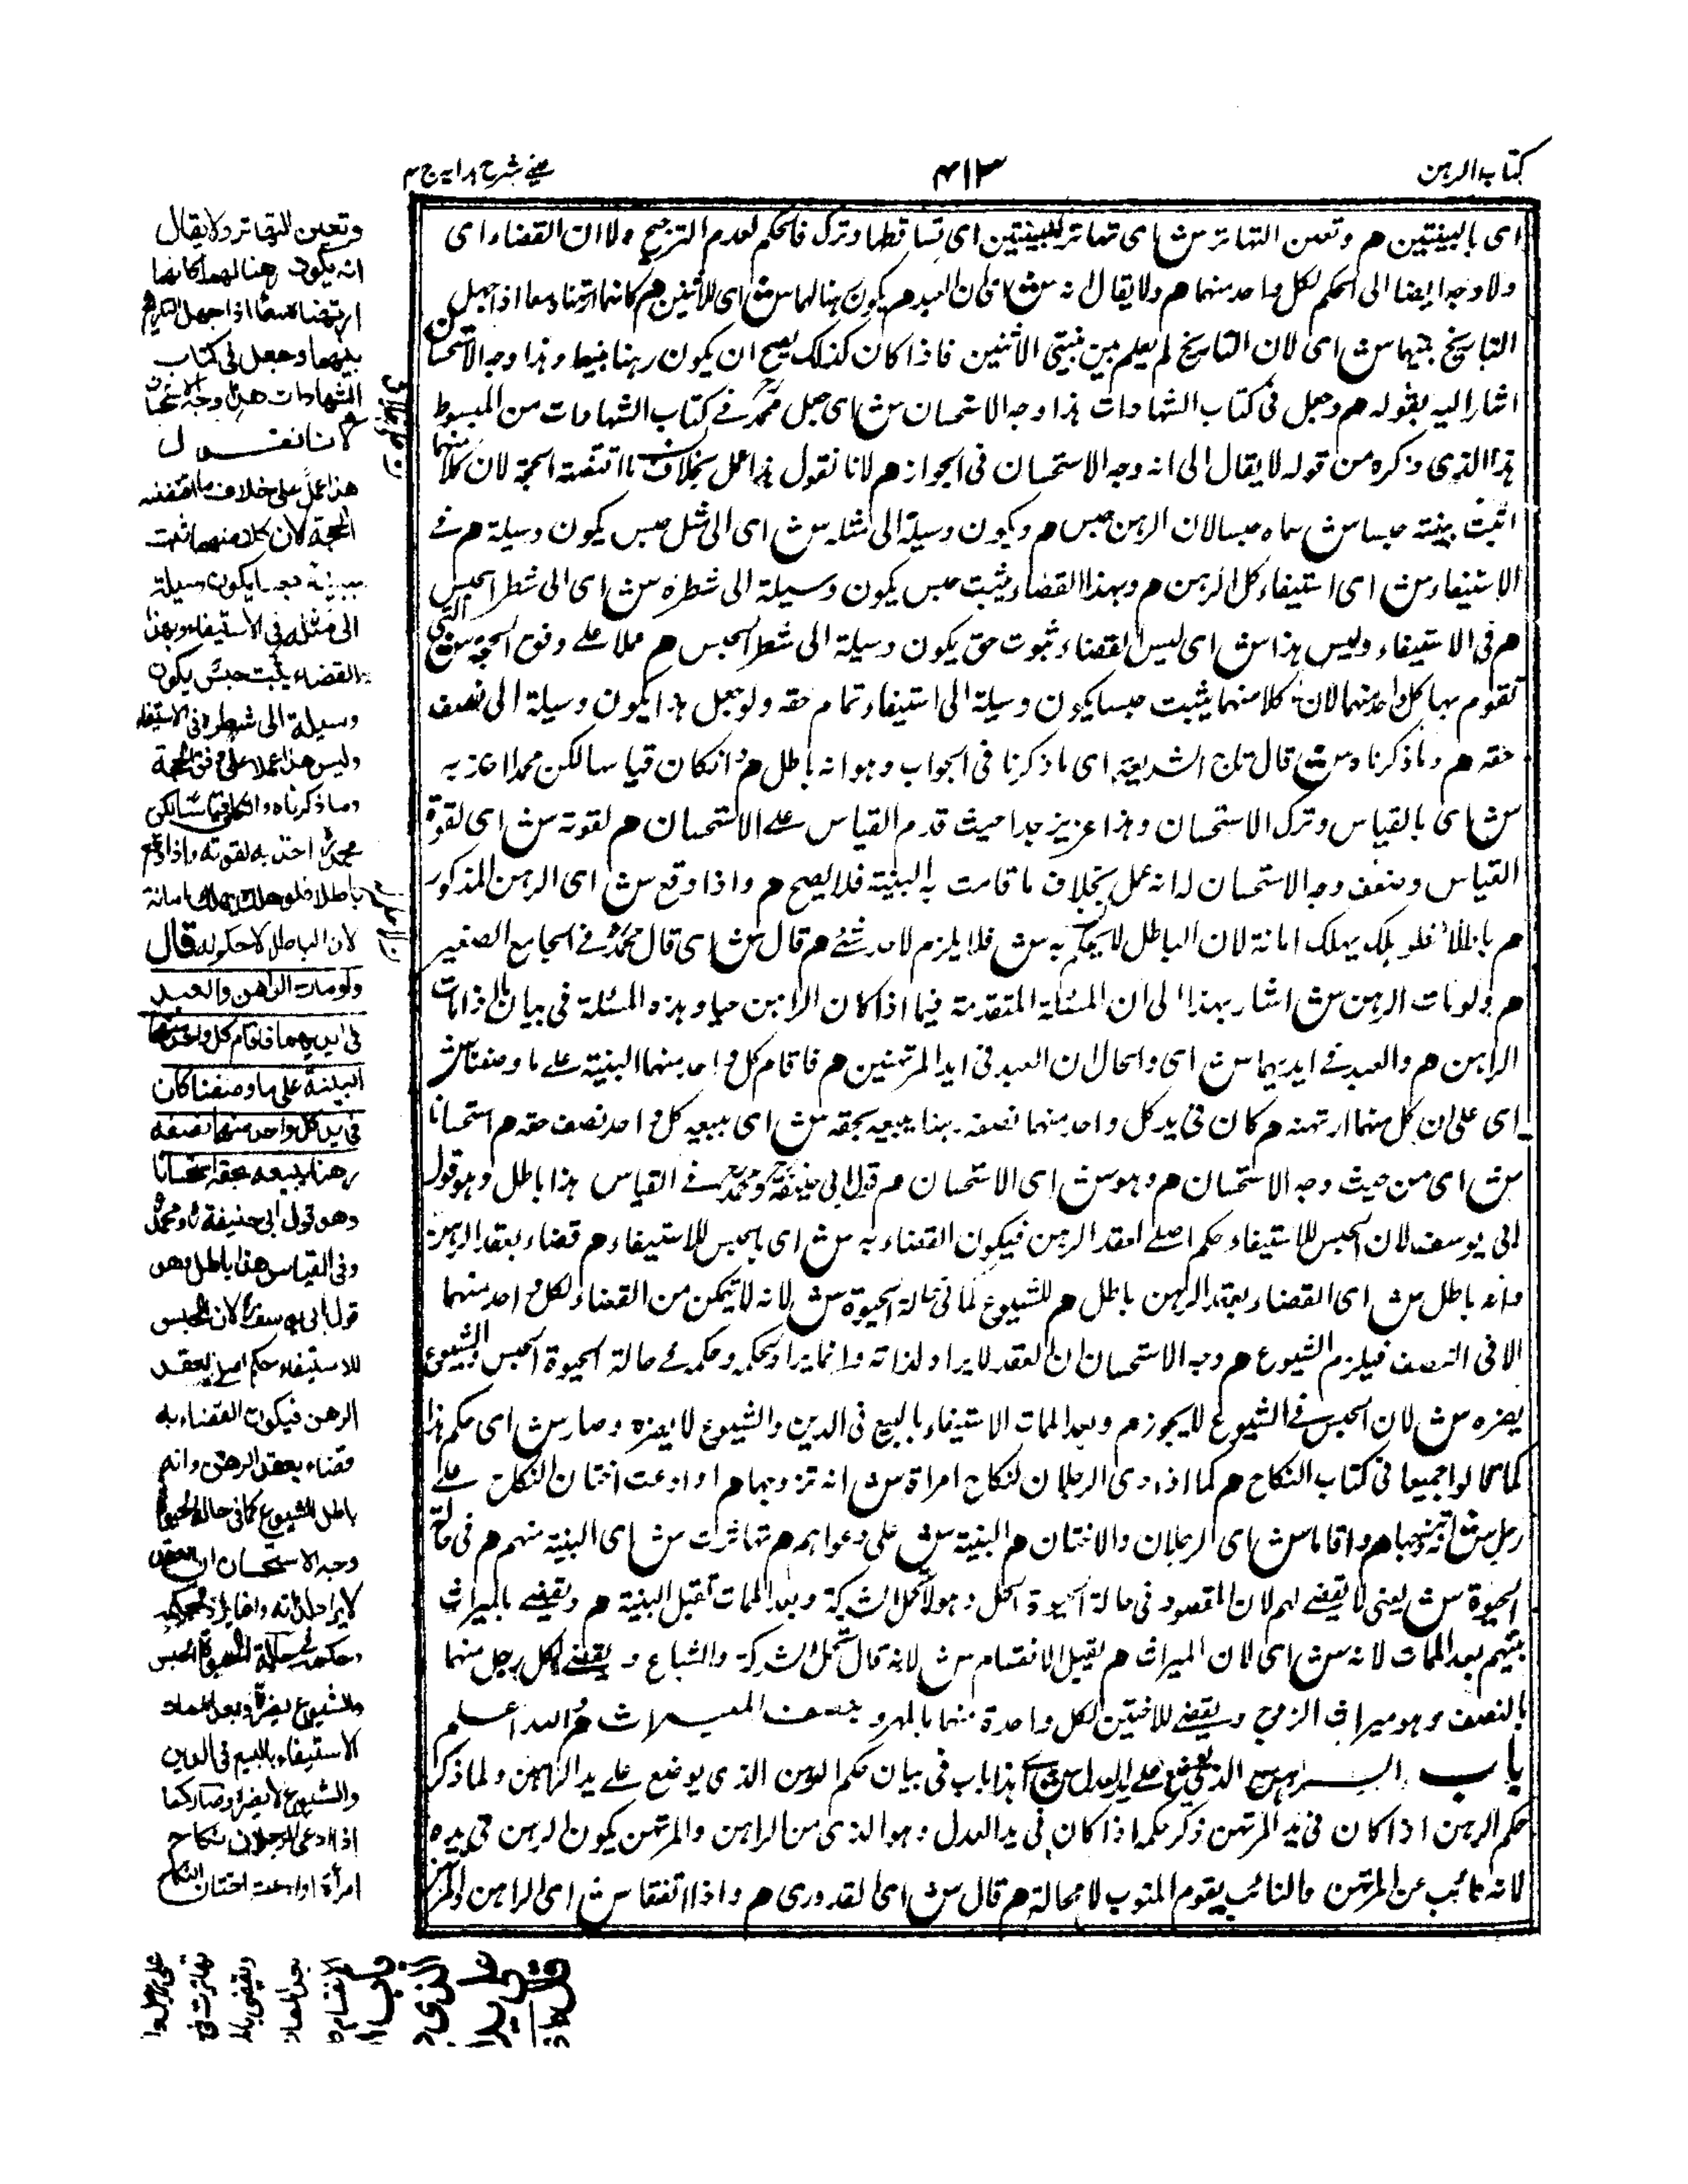 كتاب الرهن
٤١٣
عينى شرح هدايه ج ٤
اى بالبينتين هم وتعين التهاتر ش اى تهاتر البينتين اى تساقطها وترك الحكم لعدم الترجيح ولا ان القضاء اى
ولا وجه ايضا الى الحكم لكل واحد منهما هم ولا يقال انه ش اى ان العبد هم يكون رهنا لهما ش اى للاثنين هم كانهما ارتهناه معا اذا جهل
التاريخ بينهما ش اى لان التاريخ لم يعلم بين بينتى الاثنين فاذا كان كذلك يصح ان يكون رهنا بينهما وهذا وجه الاستحسان
اشار اليه بقوله هم وجعل فى كتاب الشهادات هذا وجه الاستحسان ش اى جعل محمد فى كتاب الشهادات من المبسوط
هذا الذى ذكره من قوله لا يقال الى انه وجه الاستحسان فى الجواز هم لانا نقول هذا عمل بخلاف ما اقتضته الحجة لان كلا منهما
اثبت ببينته حبسا ش سماه حبسا لان الرهن حبس هم ويكون وسيلة الى مثله ش اى الى مثل حبس يكون وسيلة هم فى
الاستيفاء ش اى استيفاء كل الرهن هم وبهذا القضاء يثبت حبس يكون وسيلة الى شطره ش اى الى شطر الحبس
هم فى الاستيفاء وليس هذا ش اى ليس القضاء ثبوت حق يكون وسيلة الى شطر الحبس هم عملا على وفق الحجة ش التى
تقوم بها كل واحد منهما لان كلا منهما يثبت حبسا يكون وسيلة الى استيفاء تمام حقه ولو جعل هذا يكون وسيلة الى نصف
حقه هم وما ذكرناه ش قال تاج الشريعة اى ما ذكرنا فى الجواب وهو انه باطل هم وان كان قياسا لكن محمدا اخذ به
ش اى بالقياس وترك الاستحسان وهذا عزيز جدا حيث قدم القياس على الاستحسان هم لقوته ش اى لقوة
القياس وضعف وجه الاستحسان لانه عمل بخلاف ما قامت به البينة فلا يصح هم واذا وقع ش اى الرهن المذكور
هم باطلا فلو هلك يهلك امانة لان الباطل لا حكم له ش فلا يلزم لاحد شئ هم قال ش اى قال محمد فى الجامع الصغير
هم ولو مات الراهن ش اشار بهذا الى ان المسئلة المتقدمة فيما اذا كان الراهن حيا وهذه المسئلة فى بيان ما اذا مات
الراهن هم والعبد فى ايديهما ش اى والحال ان العبد فى ايدا المرتهنين هم فاقام كل واحد منهما البينة على ما وصفنا ش
اى على ان كل منهما ارتهنه هم كان فى يد كل واحد منهما نصفه رهنا يبيعه بحقه ش اى يبيعه كل واحد نصف حقه هم استحسانا
ش اى من حيث وجه الاستحسان هم وهو ش اى الاستحسان هم قول ابى حنيفة ومحمد وفى القياس هذا باطل وهو قول
ابى يوسف لان الحبس للاستيفاء حكم اصلى لعقد الرهن فيكون القضاء به ش اى بالحبس للاستيفاء هم قضاء بعقد الرهن
وانه باطل ش اى القضاء بعقد الرهن باطل هم للشيوع كما فى حالة الحيوة ش لانه لا يمكن من القضاء لكل واحد منهما
الا فى النصف فيلزم الشيوع هم وجه الاستحسان ان العقد لا يراد لذاته وانما يراد لحكمه وحكمه فى حالة الحيوة الحبس والشيوع
يضره ش لان الحبس فى الشيوع لا يجوز هم وبعد الممات الاستيفاء بالبيع فى الدين والشيوع لا يضره وصار ش اى حكم هذا
كما قالوا جميعا فى كتاب النكاح هم كما اذا ادعى الرجلان نكاح امراة ش انه تزوجها هم او ادعت اختان النكاح على
رجل ش انه تزوجها هم واقاما ش اى الرجلان والاختان هم البينة ش على دعواهم هم تهاترت ش اى البينة منهم هم فى حالة
الحيوة ش يعنى لا يقضى لهم لان المقصود فى حالة الحيوة الحل وهو لا يحتمل الشركة وبعد الممات تقبل البينة هم ويقضى بالميراث
بينهم بعد الممات لانه ش اى لان الميراث هم يقبل الانقسام ش لانه مال يحتمل الشركة والشياع ويقضى لكل رجل منهما
بالنصف وهو ميراث الزوج ويقضى للاختين لكل واحدة منهما بالمهر ونصف الميراث هم والله اعلم
باب الرهن الذى يوضع على يد العدل ش اى هذا باب فى بيان حكم الرهن الذى يوضع على يد الراهن ولما ذكر
حكم الرهن اذا كان فى يد المرتهن ذكر حكمه اذا كان فى يد العدل وهو الذى من الراهن والمرتهن يكون الرهن فى يده
لانه نائب عن المرتهن والنائب يقوم المنوب لا محالة هم قال ش اى القدورى هم واذا اتفقا ش اى الراهن والمرتهن
وتعين التهاتر ولا يقال
انه يكون رهنا لهما كانهما
ارتهناه معا اذا جهل التاريخ
بينهما وجعل فى كتاب
الشهادات هذا وجه الاستحسان
لانا نقول
هذا عمل على خلاف ما اقتضته
الحجة لان كلا منهما اثبت
ببينته حبسا يكون وسيلة
الى مثله فى الاستيفاء وبهذا
القضاء يثبت حبس يكون
وسيلة الى شطره فى الاستيفاء
وليس هذا عملا على وفق الحجة
وما ذكرناه وان كان قياسا لكن
محمدا اخذ به لقوته واذا وقع
باطلا فلو هلك يهلك امانة
لان الباطل لا حكم له قال
ولو مات الراهن والعبد
فى ايديهما فاقام كل واحد منهما
البينة على ما وصفنا كان
فى يد كل واحد منهما نصفه
رهنا يبيعه بحقه استحسانا
وهو قول ابى حنيفة ومحمد
وفى القياس هذا باطل وهو
قول ابى يوسف لان الحبس
للاستيفاء حكم اصلى لعقد
الرهن فيكون القضاء به
قضاء بعقد الرهن وانه
باطل للشيوع كما فى حالة الحيوة
وجه الاستحسان ان العقد
لا يراد لذاته وانما يراد لحكمه
وحكمه فى حالة الحيوة الحبس
والشيوع يضره وبعد الممات
الاستيفاء بالبيع فى الدين
والشيوع لا يضره وصار كما
اذا ادعى الرجلان نكاح
امرأة او ادعت اختان النكاح
على رجل وا
تهاترت فى
ويقضى بالم
بعد الممات
الانقسام و
باب ا
الذى
على يد
قال واذ